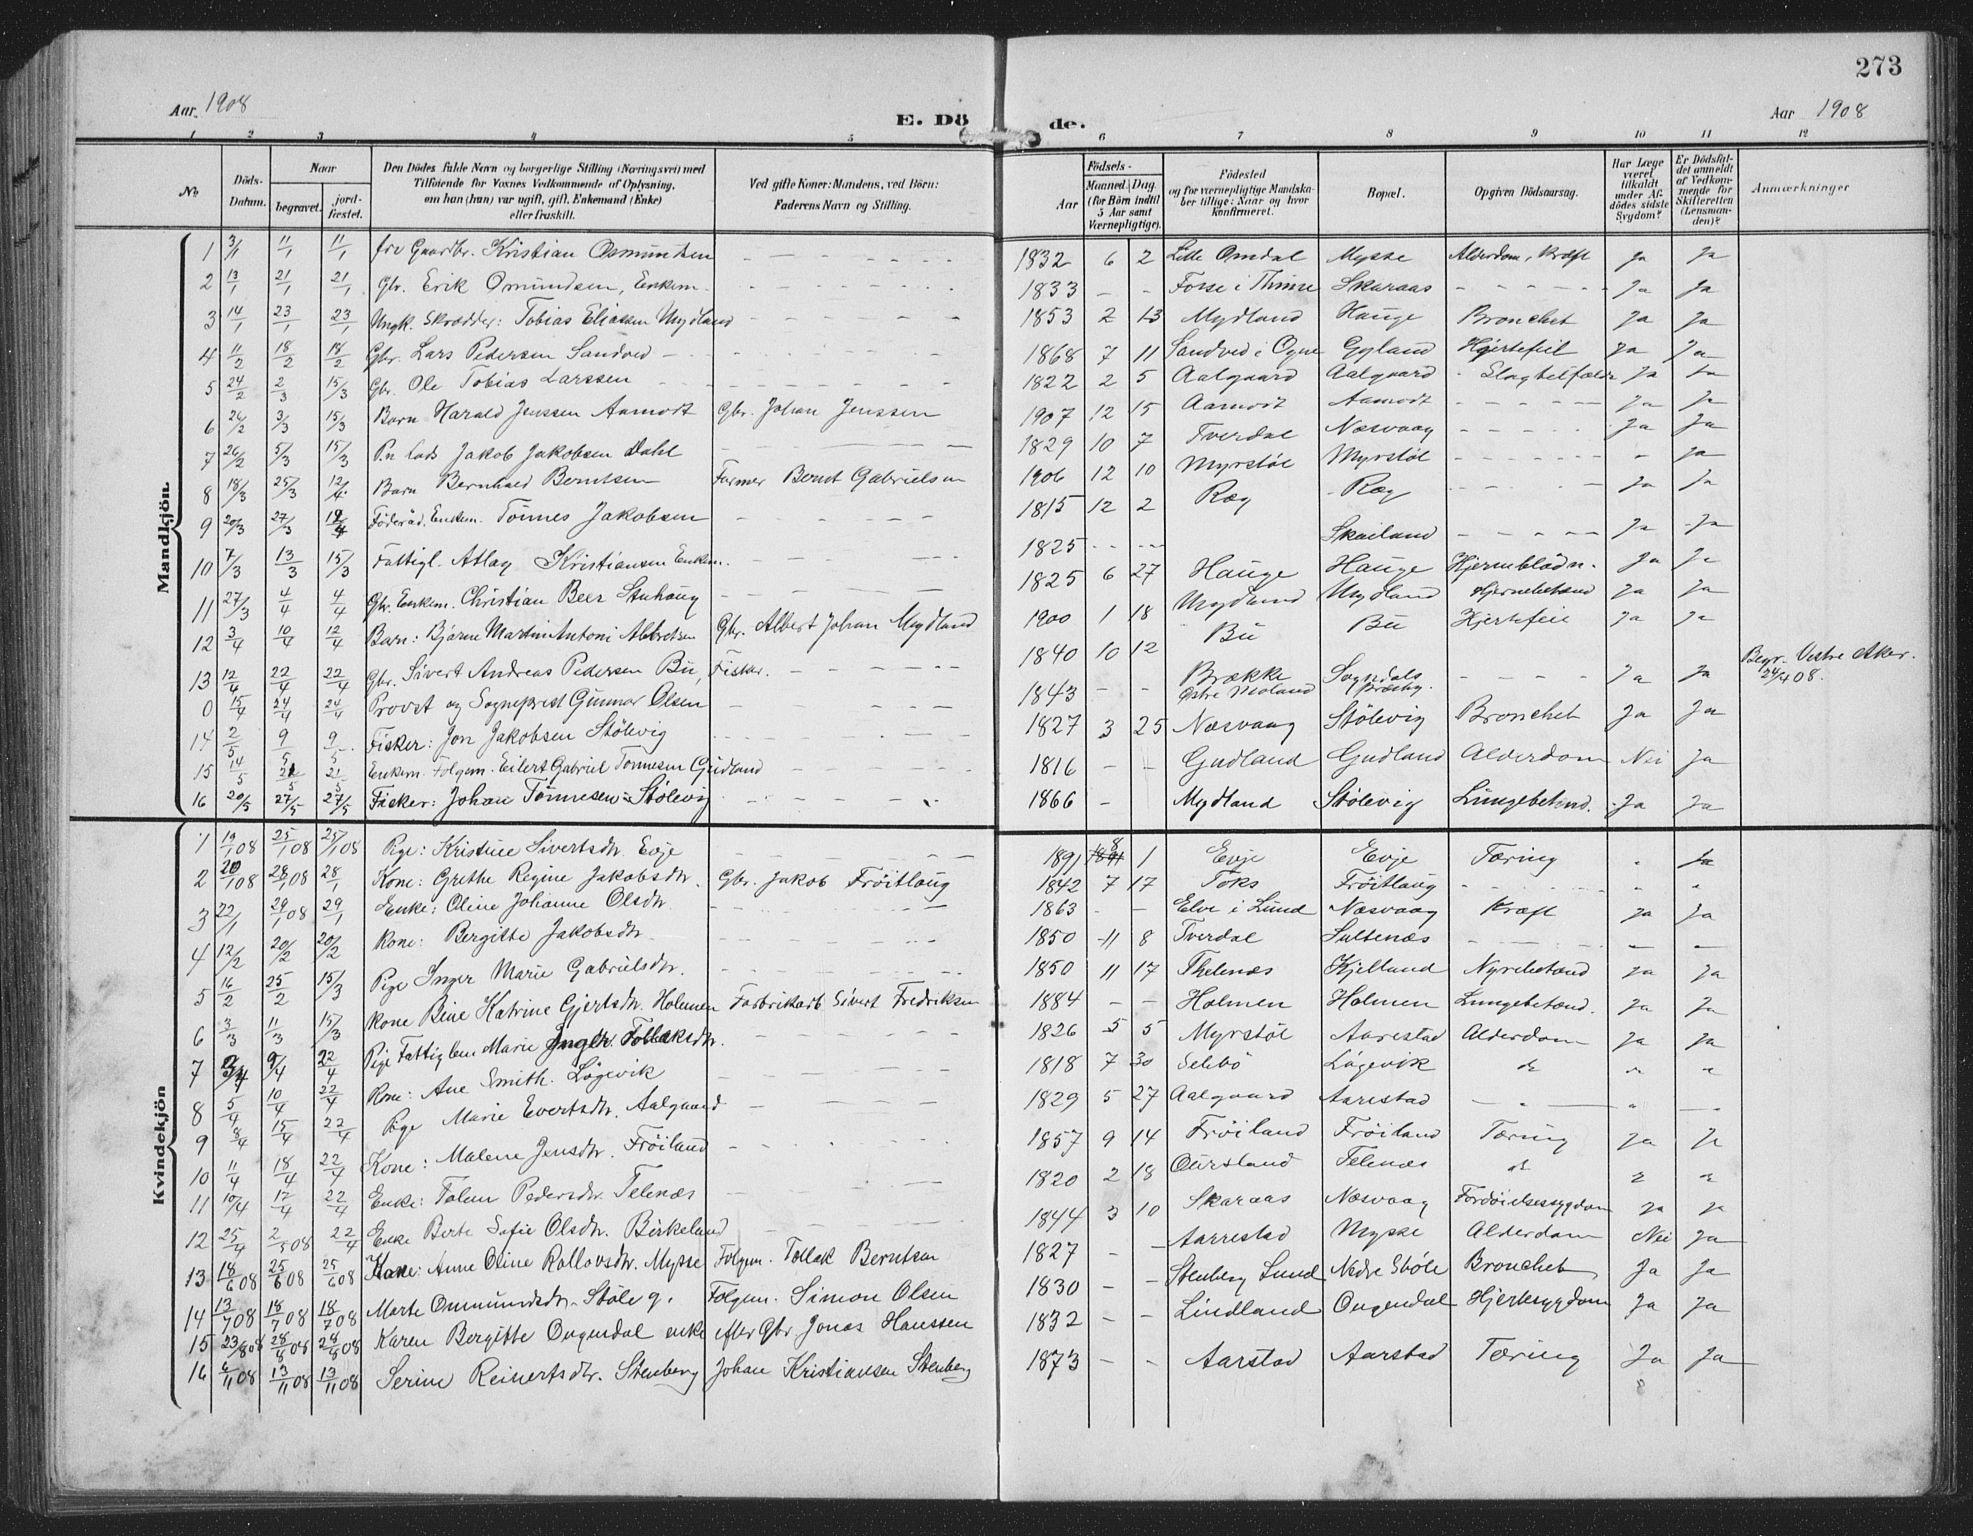 273
Aar 1908
E. Dö
de.
Aar 1908
1 2 3 4 5 6 7 8 9 10 11 12
No
Döds-Datum.
Naar
begravet.
jord-fæstet.
Den Dödes fulde Navn og borgerlige Stilling (Næringsvei) med
Tilföiende for Voxnes Vedkommende af Oplysning,
om han (hun) var ugift, gift, Enkemand (Enke)
eller fraskilt.
Ved gifte Koner: Mandens, ved Börn:
Faderens Navn og Stilling.
Födsels-
Aar
Maaned. Dag.
(for Börn indtil
5 Aar samt
Værnepligtige).
Födested
og for værnepligtige Mandska-
ber tillige: Naar og hvor
konfirmeret.
Bopæl.
Opgiven Dödsaarsag.
Har Læge
været
tilkaldt
under Af-
dödes sidste
Sygdom?
Er Dödsfal-
det anmeldt
af Vedkom-
mende for
Skifteretten
(Lensman-
den)?
Anmærkninger
Mandkjön.
1 3/1 11/1 11/1 Gaardbr. Kristian Osmundsen 1832 6 2 Lille Omdal Mysse Alderdom, Kræft Ja Ja
2 13/1 21/1 21/1 Gbr. Erik Omundsen, Enkem. 1833 Skaraas Ja Ja
3 14/1 23/1 23/1 Ungk. Skrædder: Tobias Eliassen Mydland 1853 2 13 Mydland Hauge Bronchet Ja Ja
4 11/2 18/2 18/2 Gbr. Lars Pedersen Sandved 1868 7 11 Sandved i Ogne Gyland Hjertefeil Ja Ja
5 24/2 2/3 15/3 Gbr. Ole Tobias Larssen 1822 2 5 Aalgaard Aalgaard Ja Ja
6 26/2 3/3 15/3 Barn Harald Jenssen Aamodt Gbr. Johan Jenssen 1907 12 15 Aamodt Aamodt Ja Ja
7 26/2 5/3 15/3 Jakob Jakobsen Dahl 1829 10 7 Tverdal Næsvaag Ja Ja
8 18/3 25/3 12/4 Barn Bernhard Berntsen Farmer Bernt Gabrielsen 1906 12 10 Myrstöl Myrstöl - Ja
9 20/3 27/3 Föderåd. Enkem. Tönnes Jakobsen 1815 12 2 Ræg Ræg Ja Ja
10 7/3 13/3 15/3 Fattigl. Atlag Kristiansen Enkem. 1825 Skailand Ja Ja
11 27/3 4/4 4/4 Gbr. Enkem. Christian Beer Stuhaug 1825 6 27 Hauge Hauge Hjerneblödn. Ja Ja
12 3/4 10/4 12/4 Barn: Bjarne Martin Antoni Albretsen Gbr. Albert Johan Mydland 1900 1 18 Mydland Mydland Hjernebetænd Ja Ja
13 12/4 22/4 22/4 Gbr. Sivert Andreas Pedersen Bu, Fisker. 1840 10 12 Bu Bu Hjertefeil Ja Ja
0 15/4 24/4 24/4 Provst og Sogneprest Gunnar Olsen 1843 Brække Östre Moland Sogndals Præstg. Ja Ja Begr. Vestre Aker. 24/4 08.
14 2/5 9/5 9/5 Fisker: Jon Jakobsen Stölevig 1827 3 25 Næsvaag Stölevig Bronchet Ja Ja
15 14/5 21/5 21/5 Enkem. Folgem. Eilert Gabriel Tönnesen Gudland 1816 Gudland Gudland Alderdom Nei Ja
16 20/5 27/5 27/5 Fisker: Johan Tönnesen Stölevig 1866 Mydland Stölevig Lungebetænd. Ja Ja
Kvindekjön
1 19/1 08 25/1 08 25/1 08 Pige: Kristine Sivertsdtr. Evje 1891 8 1 Evje Evje Tæring Ja
2 20/1 08 28/1 08 28/1 Kone: Grethe Regine Jakobsdtr. Gbr. Jakob Fröitlaug 1842 7 17 Toks Fröitlaug
3 22/1 29/1 08 29/1 Enke: Oline Johanne Olsdtr. 1863 Elve i Lund Næsvaag Kræft Ja Ja
4 12/2 20/2 20/2 Kone: Bergitte Jakobsdtr. 1850 11 8 Tverdal Saltenæs
5 16/2 25/2 15/3 Pige Inger Marie Gabrielsdtr. 1850 11 17 Thelenæs Kjelland Nyrebetænd Ja Ja
6 3/3 11/3 15/3 Kone Bine Katrine Gjertsdtr. Holmen Fabrikarb Sivert Fredriksen 1884 Holmen Holmen Lungebetænd. Ja Ja
7 9/4 22/4 Pige Fattiglem Marie Tollaksdtr. 1826 5 5 Myrstöl Aarestad Alderdom Ja Ja
8 5/4 10/4 22/4 Kone: Ane Smith. Lögevik 1818 7 30 Selebö Lögevik
9 8/4 15/4 22/4 Pige Marie Evertsdtr. Aalgaard 1829 5 27 Aalgaard Aarestad
10 11/4 18/4 22/4 Kone: Malene Jensdtr. Fröiland 1857 9 14 Fröiland Fröiland Tæring Ja Ja
11 10/4 17/4 22/4 Enke: Pedersdtr. Telenæs 1820 2 18 Telenæs
12 25/4 2/5 08 22/4 Enke Berte Sofie Olsdtr. Birkeland 1844 3 10 Skaraas Næsvaag Fordöielsessygdom Ja Ja
13 18/6 08 25/6 08 25/6 08 Kone: Anne Oline Rollovsdtr. Mysse Folgem. Tollak Berntsen 1827 Aarrestad Mysse Alderdom Nei Ja
14 13/7 08 18/7 08 18/7 08 Marte Ommundsdtr. Stöle g. Folgem. Simon Olsen 1830 Stenberg Lund Nedre Stöle Bronchet Ja Ja
15 23/8 08 28/8 08 28/8 08 Karen Bergitte Ougendal enke efter Gbr Jonas Hanssen 1832 Lindland Ougendal Hjertesygdom Ja Ja
16 6/11 08 13/11 08 13/11 08 Serine Reinertsdtr. Stenberg Johan Kristiansen Stenberg 1873 Aarstad Aarstad Tæring Ja Ja